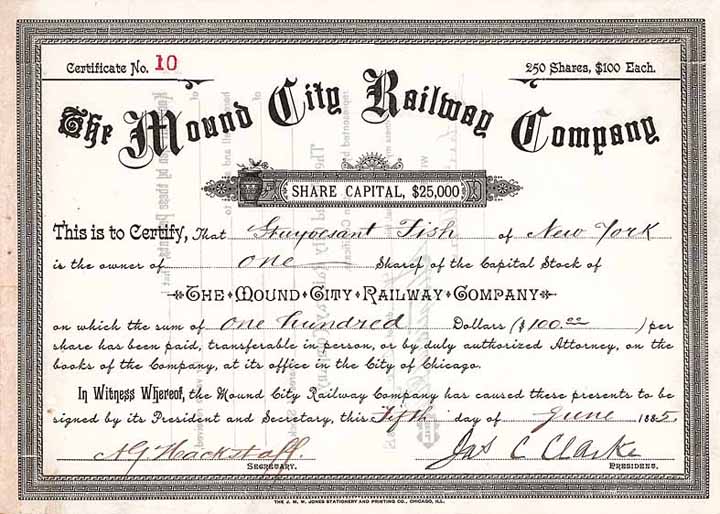 Certificate No. 10
250 Shares, $100 Each.
The Mound City Railway Company
SHARE CAPITAL, $25,000
This is to Certify, That Stuyvesant Fish of New York
is the owner of one Share of the Capital Stock of
THE MOUND CITY RAILWAY COMPANY
on which the sum of one hundred Dollars ($100.00) per
share has been paid, transferable in person, or by duly authorized Attorney, on the
books of the Company, at its office in the City of Chicago.
In Witness Whereof, the Mound City Railway Company has caused these presents to be
signed by its President and Secretary, this Fifth day of June 1885
AG Hackstaff. Jas C Clarke
SECRETARY. PRESIDENT.
THE J. M. W. JONES STATIONERY AND PRINTING CO., CHICAGO, ILL.